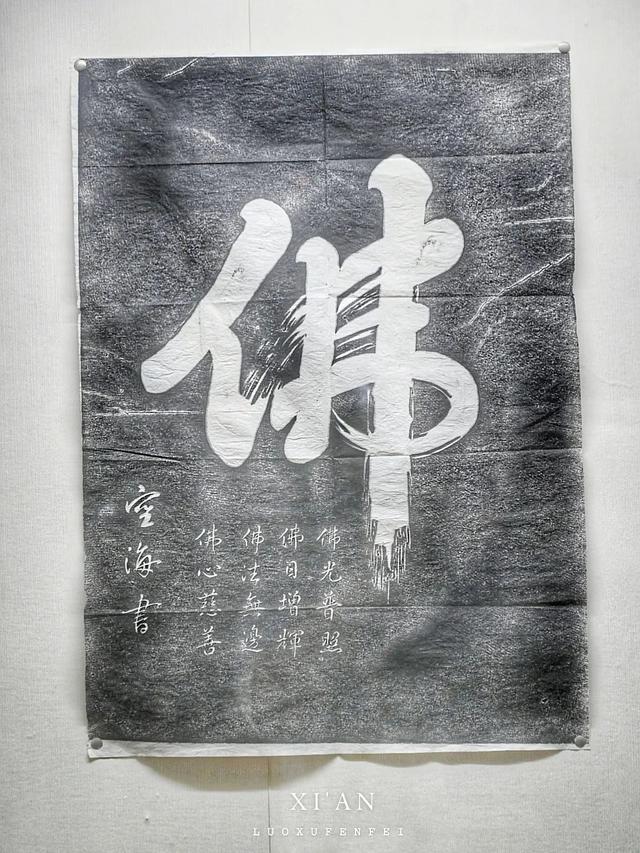 佛
佛光普照
佛日增輝
佛法無邊
佛心慈善
空海書
XI'AN
LUOXUFENFEI